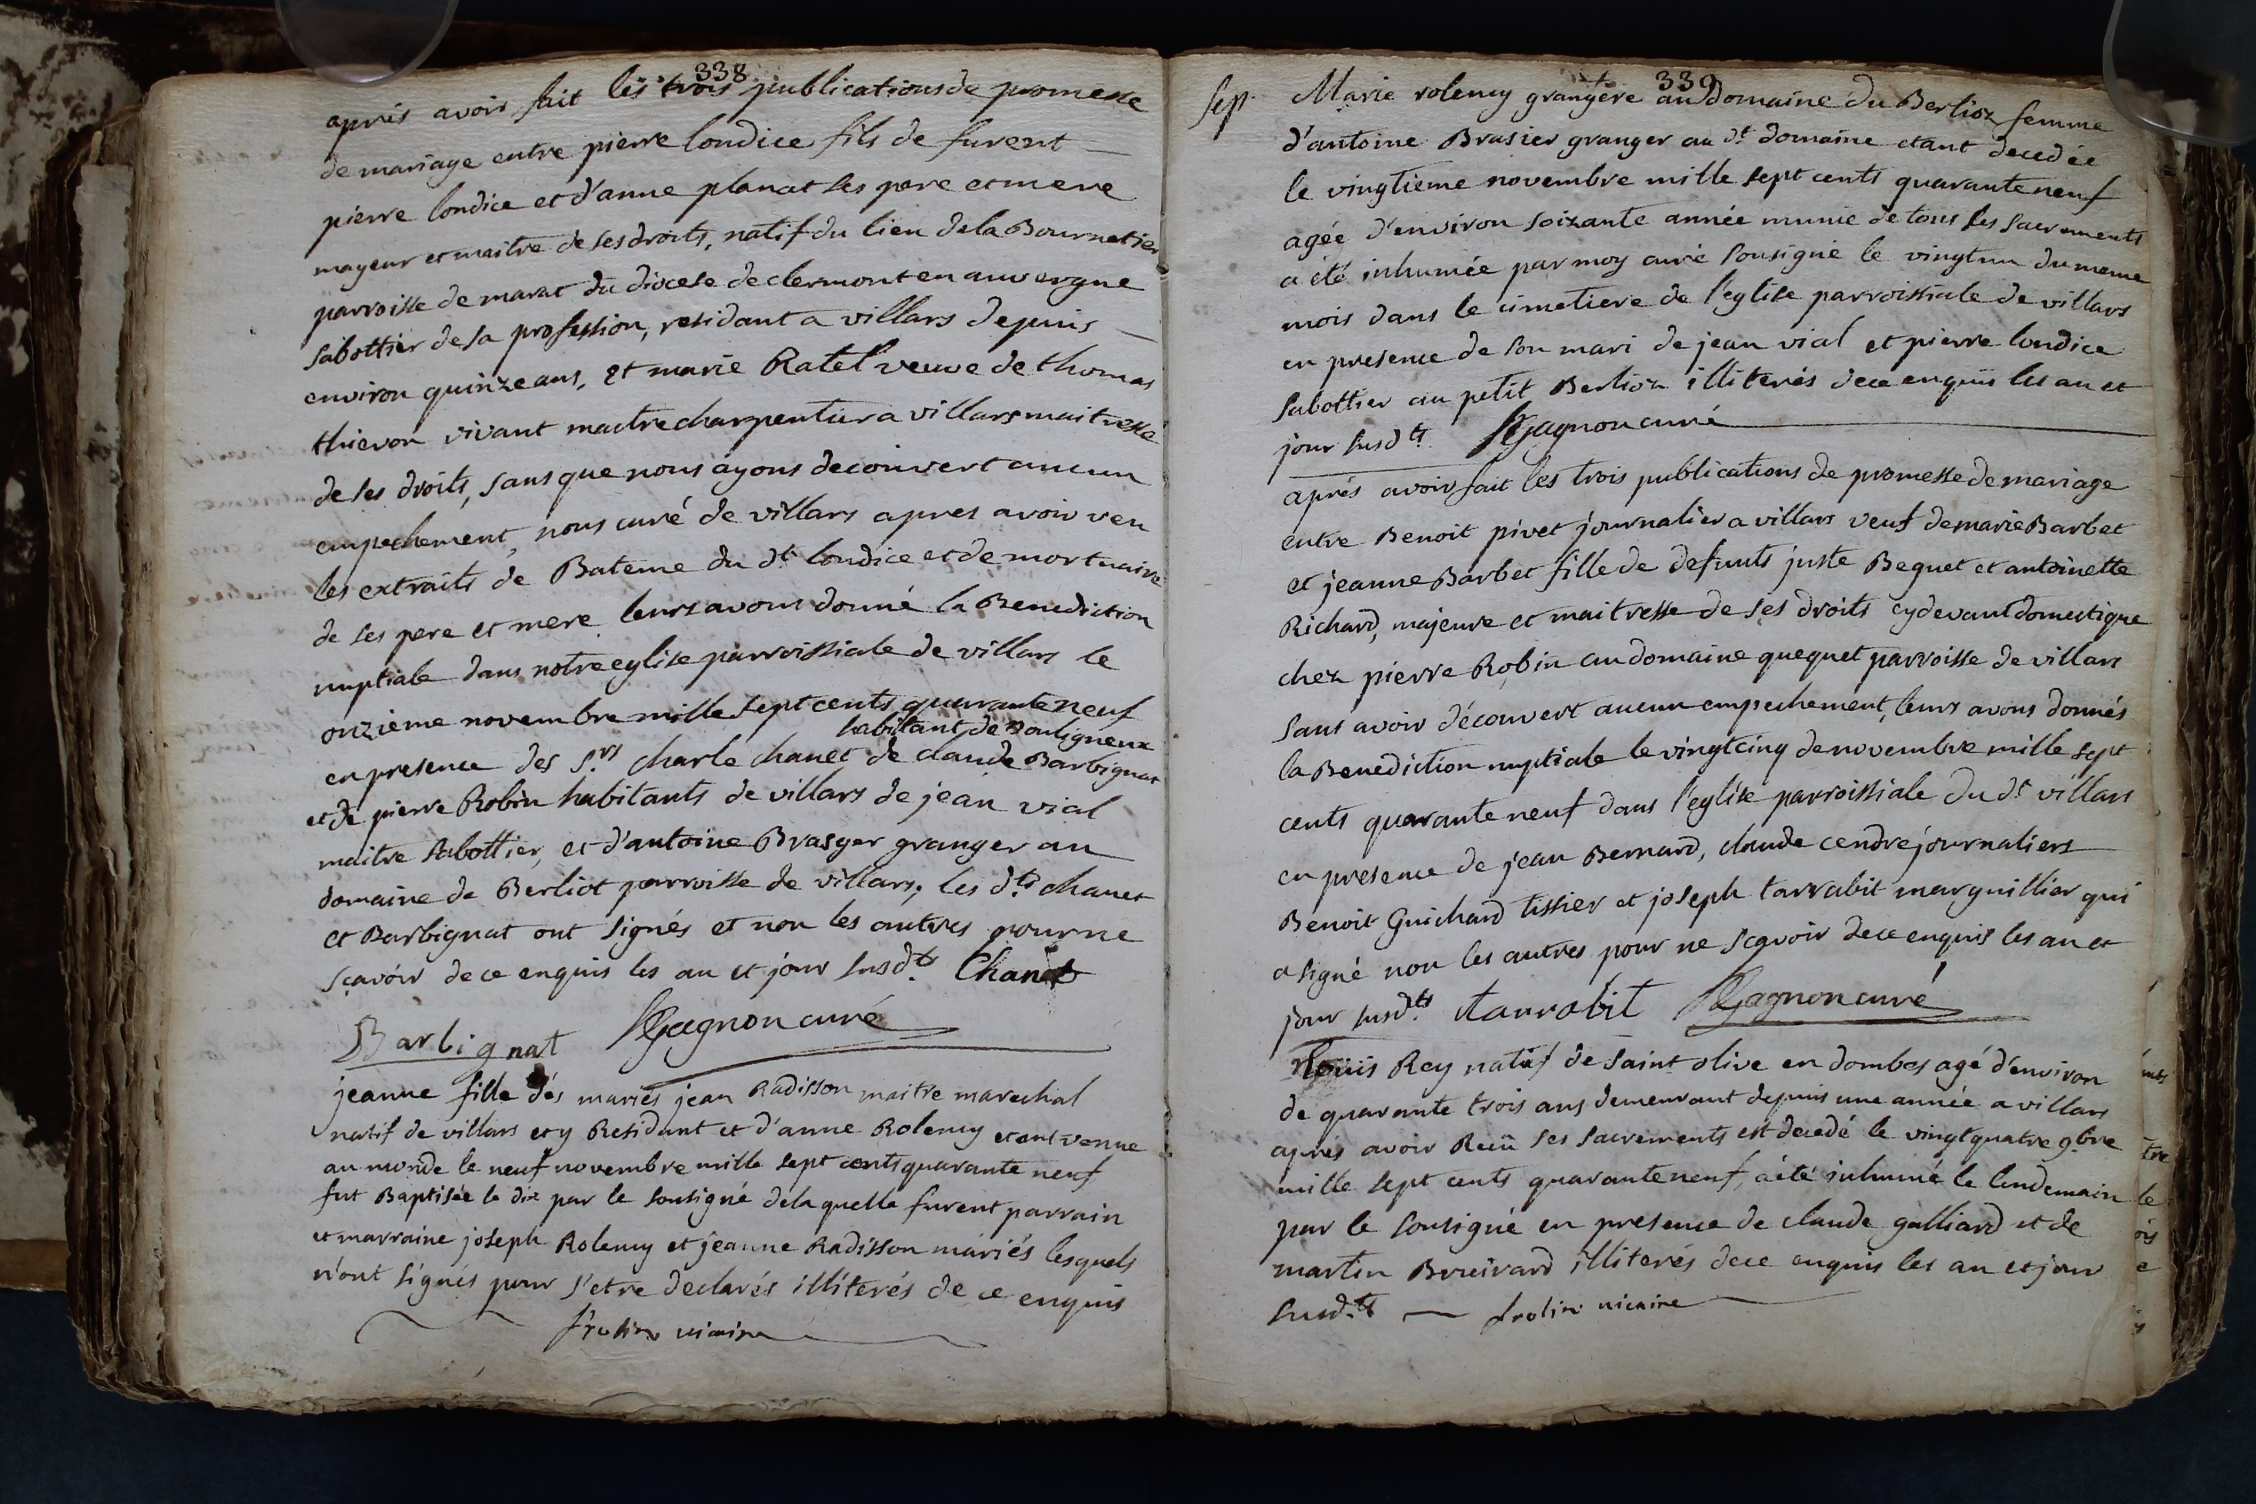 338
après avoir fait les trois publications de promesse
de mariage entre pierre londice fils de furent
pierre londice et d'anne planat ses pere et mere
mayeur et maitre de ses droits, natif du lieu de la Bournetier
parroisse de marat du diocese de clermont en auvergne
sabottier de sa profession, residant a villars depuis
environ quinze ans, et marie Ratel veuve de thomas
thievon vivant maitre charpentier a villars maitresse
de ses droits, sans que nous ayons decouvert aucun
empechement, nous curé de villars apres avoir veu
les extraits de Bateme du dt londice et de mortuaire
de ses pere et mere leurs avons donné la Benediction
nuptiale dans notre eglise parroissiale de villars le
onzieme novembre mille sept cents quarante neuf
habitant de Bouligneux
en presence des Srs charle chanet de claude Barbignat
et de pierre Robin habitants de villars de jean vial
maitre sabottier, et d'antoine Brasyer granger au
domaine de Berliot parroisse de villars, les dts chanet
et Barbignat ont signés et non les autres pour ne
sçavoir de ce enquis les an et jour susdts Chanet
Barbignat Gagnon curé
jeanne fille dés mariés jean Radisson maitre marechal
natif de villars et y Residant et d'anne Rolemy etant venue
au monde le neuf novembre mille sept cents quarante neuf
fut Baptisée le dix par le sousigné de la quelle furent parrain
et marraine joseph Rolemy et jeanne Radisson mariés lesquels
n'ont signés pour s'etre declarés illiterés de ce enquis
frolin vicaire
339
sep. Marie rolemy grangere au domaine du Berlioz femme
d'antoine Brasier granger au dt domaine etant decedée
le vingtieme novembre mille sept cents quarante neuf
agée d'environ soixante année munie de tous ses sacrements
a été inhumée par moy curé sousigné le vingt un du meme
mois dans le cimetiere de l'eglise parroissiale de villars
en presence de son mari de jean vial et pierre londice
sabottier au petit Berlioz illiterés de ce enquis les an et
jour susdts Gagnon curé
aprés avoir fait les trois publications de promesse de mariage
entre Benoit pivet journalier a villars veuf de marie Barbet
et jeanne Barbet fille de defunts juste Beguet et antoinette
Richard, majeure et maitresse de ses droits cy devant domestique
chez pierre Robin au domaine quequet parroisse de villars
sans avoir découvert aucun empechement, leurs avons donnés
la Benediction nuptiale le vingt cinq de novembre mille sept
cents quarante neuf dans l'eglise parroissiale du dt villars
en presence de jean Bernard, claude cendré journaliers
Benoit Guichard tissier et joseph tarrabit marguillier qui
a signé non les autres pour ne sçavoir de ce enquis les an et
jour susdts tarrabit Gagnon curé
Loüis Rey natif de saint olive en dombes agé d'environ
de quarante trois ans demeurant depuis une année a villars
aprés avoir Reçu ses sacrements est decedé le vingt quatre 9bre
mille sept cents quarante neuf, a été inhumé le lendemain
par le sousigné en presence de claude galliard et de
martin illiterés de ce enquis les an et jour
susdts frolin vicaire